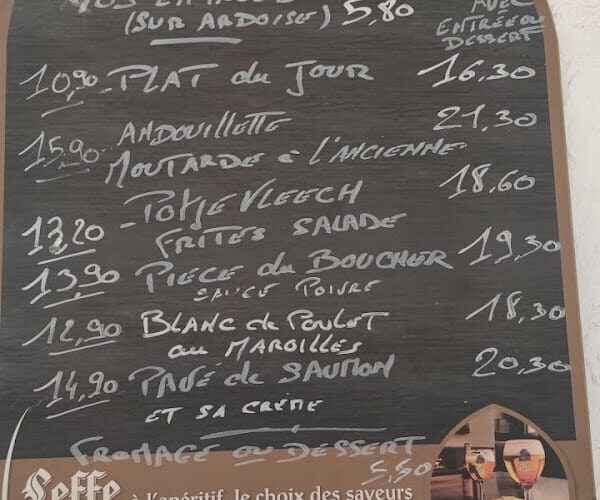 (SUR ARDOISE) 5,80
AVEC
ENTRÉE OU
DESSERT
10,90 - PLAT du JOUR 16,30
15,90 ANDOUILLETTE 21,30
MOUTARDE à l'ANCIENNE
13,20 - POTJEVLEECH 18,60
FRITES SALADE
13,90 PIECE du BOUCHER 19,30
SAUCE POIVRE
12,90 BLANC de POULET 18,30
au MAROILLES
14,90 PAVÉ de SAUMON 20,30
ET SA CRÈME
FROMAGE OU DESSERT
5,50
Leffe à l'apéritif, le choix des saveurs